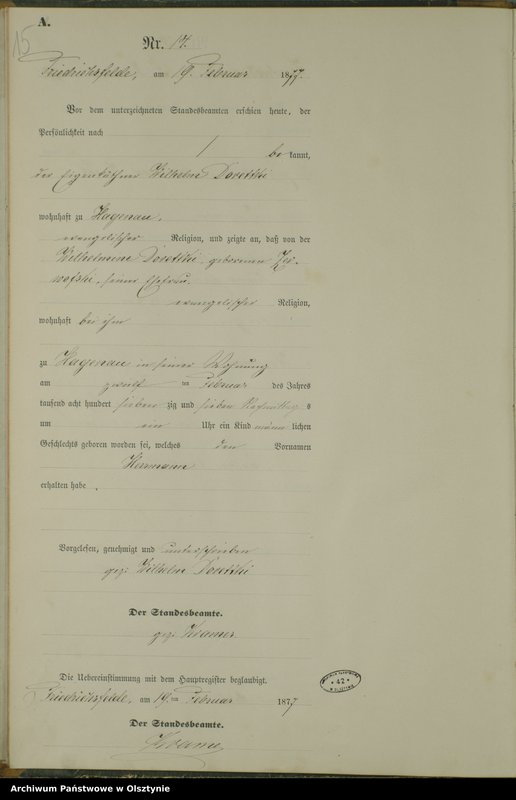 A.
15
Nr. 17.
Friedrichsfelde, am 19. Februar 1877.
Vor dem unterzeichneten Standesbeamten erschien heute, der
Persönlichkeit nach
/ be kannt,
der Eigenkäthner Wilhelm
wohnhaft zu Hagenau,
evangelischer Religion, und zeigte an, daß von der
Wilhelmine geborenen
seiner Ehefrau
evangelischer Religion,
wohnhaft bei ihm
zu Hagenau in seiner Wohnung
am ten Februar des Jahres
tausend acht hundert sieben zig und sieben Nachmittag s
um ein Uhr ein Kind männ lichen
Geschlechts geboren worden sei, welches den Vornamen
Hermann
erhalten habe.
Vorgelesen, genehmigt und unterschrieben
gez. Wilhelm
Der Standesbeamte.
gez. Kramer
Die Uebereinstimmung mit dem Hauptregister beglaubigt.
Friedrichsfelde, am 19ten Februar 1877
Der Standesbeamte.
Kramer
42
Archiwum Państwowe w Olsztynie